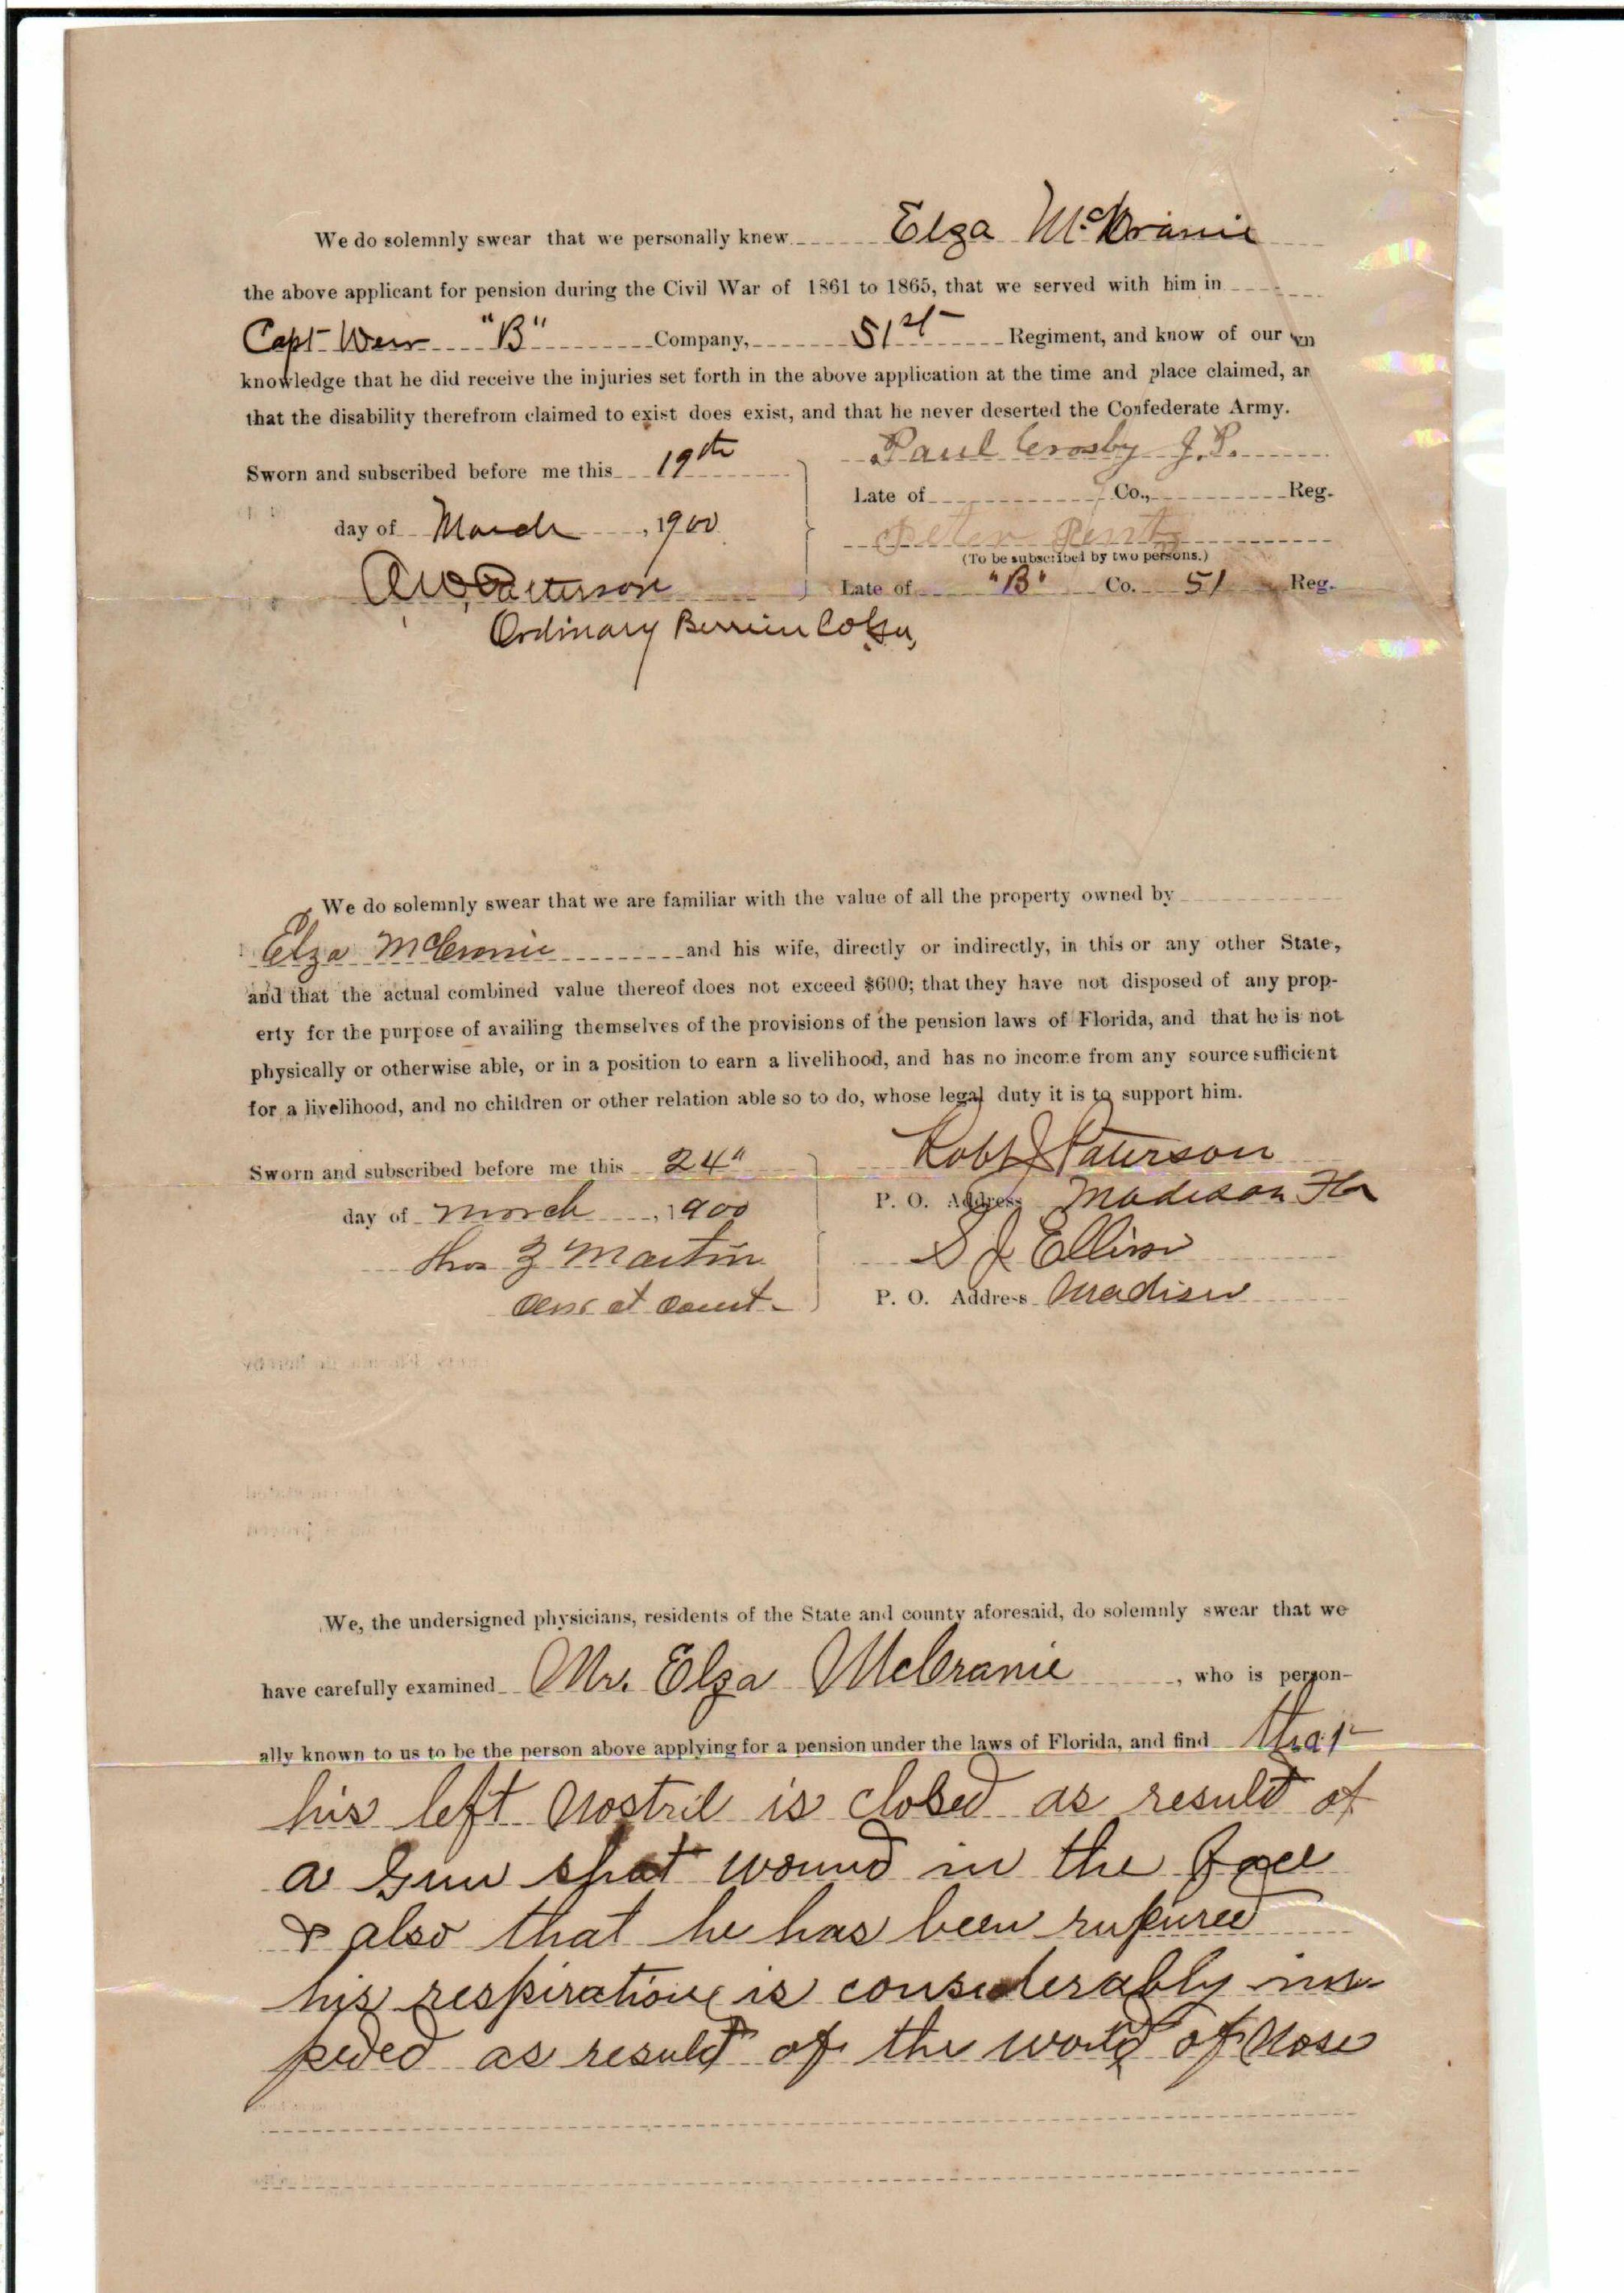 We do solemnly swear that we personally knew Elza McCranie
the above applicant for pension during the Civil War of 1861 to 1865, that we served with him in
Capt Weir "B" Company, 51st Regiment, and know of our wn
knowledge that he did receive the injuries set forth in the above application at the time and place claimed, an
that the disability therefrom claimed to exist does exist, and that he never deserted the Confederate Army.
Sworn and subscribed before me this 19th
day of March, 1900
A W Patterson
Ordinary Berrien Co Ga,
Paul Crosby J.P.
Late of Co., Reg.
Peter
(To be subscribed by two persons.)
Late of "B" Co. 51 Reg.
We do solemnly swear that we are familiar with the value of all the property owned by
Elza McCranie and his wife, directly or indirectly, in this or any other State,
and that the actual combined value thereof does not exceed $600; that they have not disposed of any prop-
erty for the purpose of availing themselves of the provisions of the pension laws of Florida, and that he is not
physically or otherwise able, or in a position to earn a livelihood, and has no income from any source sufficient
for a livelihood, and no children or other relation able so to do, whose legal duty it is to support him.
Sworn and subscribed before me this 24"
day of March, 1900
Thos Z Martin
Clerk ct Court
Robt J Paterson
P. O. Address Madison Fla
S J Ellison
P. O. Address Madison
We, the undersigned physicians, residents of the State and county aforesaid, do solemnly swear that we
have carefully examined Mr. Elza McCranie, who is person-
ally known to us to be the person above applying for a pension under the laws of Florida, and find that
his left nostril is closed as result of
a Gun shot wound in the face
& also that he has been rupured
his respiration is considerably im-
peded as result of the wound of Nose